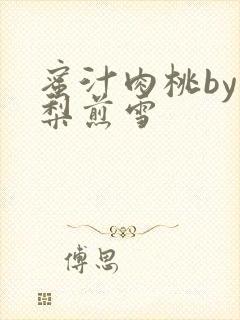 蜜汁肉桃by
梨煎雪
傅思